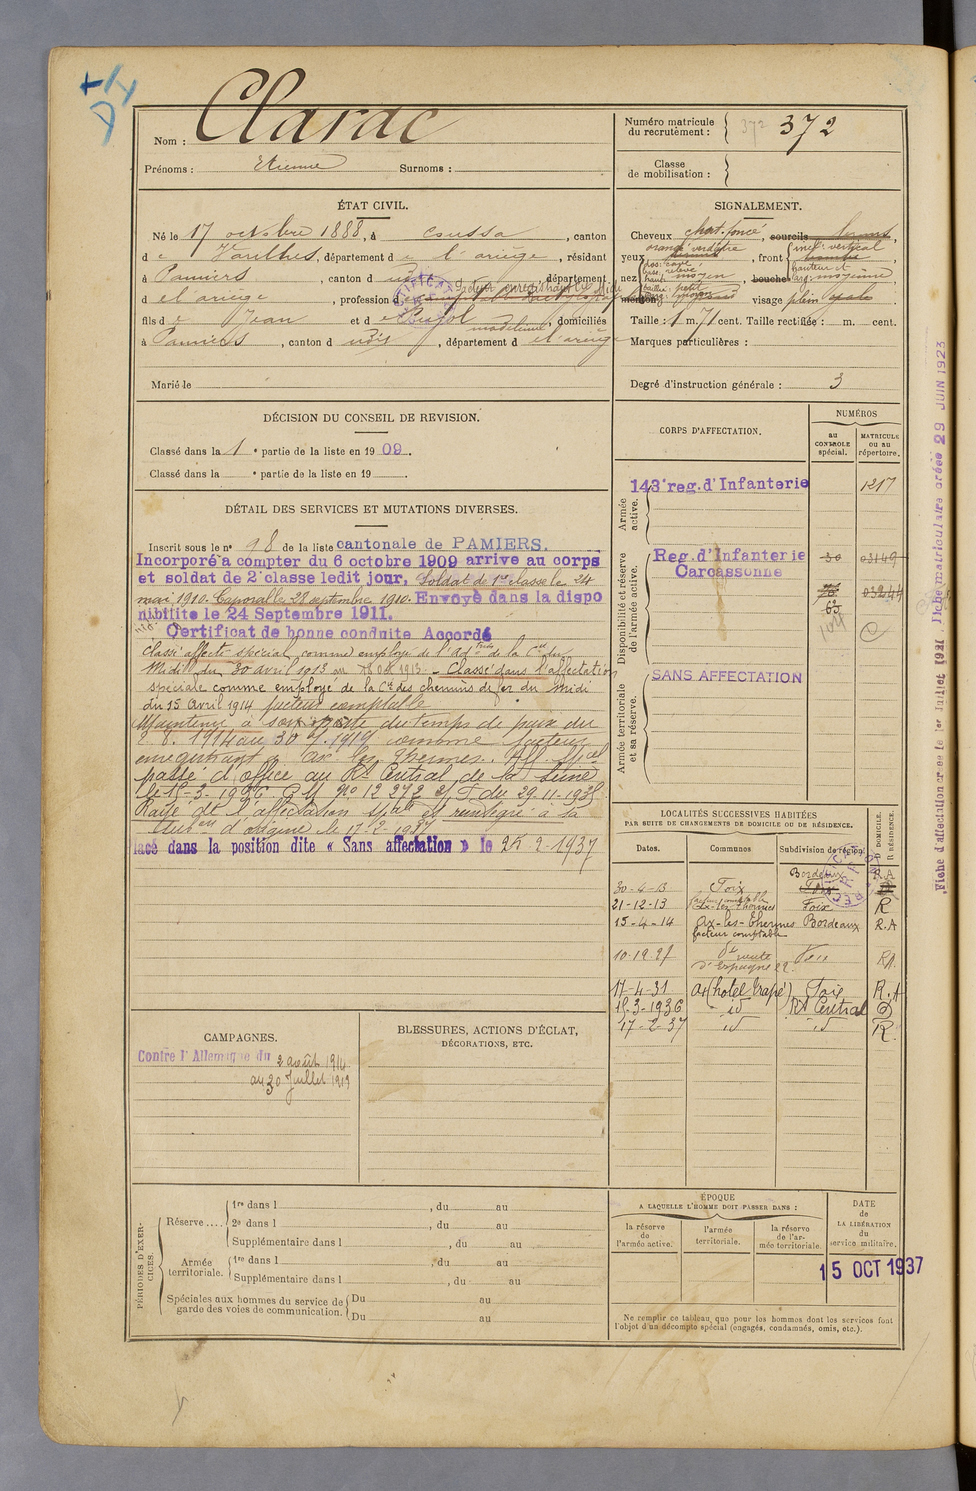 Nom : Clarac
Prénoms : Etienne Surnoms :
Numéro matricule du recrutement : 372 372
Classe de mobilisation :
ÉTAT CIVIL.
Né le 17 octobre 1888, à Coussa, canton
de Varilhes, département de l'ariège, résidant
à Pamiers, canton d udit, département
d e l'ariège, profession d
fils de Jean et de Pujol madeleine, domiciliés
à Pamiers, canton d udit, département d e l'ariège
Marié le
SIGNALEMENT.
Cheveux chat. foncé, sourcils
yeux orangé verdâtre, front incl: vertical hauteur et larg: moyenne
nez dos: cavé base: relevé haut: moyen bouche
menton visage plein
Taille : 1 m. 71 cent. Taille rectifiée : m. cent.
Marques particulières :
Degré d'instruction générale : 3
DÉCISION DU CONSEIL DE REVISION.
Classé dans la 1e partie de la liste en 1909.
Classé dans la e partie de la liste en 19
CORPS D'AFFECTATION.
NUMÉROS
au CONTROLE spécial.
MATRICULE ou au répertoire.
Armée active.
143e reg. d'Infanterie 1217
Disponibilité et réserve de l'armée active.
Reg. d'Infanterie 30 03149
Carcassonne
03244
63
Armée territoriale et sa réserve.
SANS AFFECTATION
DÉTAIL DES SERVICES ET MUTATIONS DIVERSES.
Inscrit sous le n° 98 de la liste cantonale de PAMIERS.
Incorporé à compter du 6 octobre 1909 arrive au corps
et soldat de 2e classe ledit jour. Soldat de 1re classe le 24
mars 1910. Caporal le 28 septembre 1910. Envoyé dans la dispo
nibilité le 24 Septembre 1911.
Certificat de bonne conduite Accordé
Classé affecté spécial comme employé de l'Adtion de la Cie du
Midi du 30 avril 1913 au 18 Oct 1913. Classé dans l'affectation
spéciale comme employé de la Cie des chemins de fer du Midi
du 15 Avril 1914 facteur comptable
Maintenu à son poste du temps de paix du
2. 8. 1914 au 30 7. 1919 comme facteur
enregistrant à ax les Thermes. Aff. Spcial
passé d'office au Rt Central de la Seine
le 15-3-1936 C M No 12 272 2/ F du 29-11-1935
Rayé de l'affectation spale et réintégré à sa
Subon d'origine le 17-2-1937
lacé dans la position dite « Sans affectation » le 25-2-1937
LOCALITÉS SUCCESSIVES HABITÉES
PAR SUITE DE CHANGEMENTS DE DOMICILE OU DE RÉSIDENCE.
Dates. Communes Subdivision de région. DOMICILE. R RÉSIDENCE.
Bordeaux R.A
30-4-13 Foix Foix
21-12-13 facteur comptable Ax-les-Thermes Foix R
15-4-14 Ax-les-Thermes Bordeaux R.A
facteur comptable
10.12.27 route d'Espagne 22. RA
17-4-31 Ax (hotel Trapé) Foix R.A
15-3-1936 id Rt Central D
17-2-37 id id R
CAMPAGNES.
Contre l'Allemagne du 2 août 1914
au 30 Juillet 1919
BLESSURES, ACTIONS D'ÉCLAT,
DÉCORATIONS, ETC.
PÉRIODES D'EXERCICES.
Réserve .... 1re dans l , du au
2e dans l , du au
Supplémentaire dans l , du au
Armée territoriale. 1re dans l , du au
Supplémentaire dans l , du au
Spéciales aux hommes du service de garde des voies de communication. Du au
Du au
ÉPOQUE
A LAQUELLE L'HOMME DOIT PASSER DANS :
la réserve de l'armée active.
l'armée territoriale.
la réserve de l'armée territoriale.
DATE de LA LIBÉRATION du service militaire.
15 OCT 1937
Ne remplir ce tableau que pour les hommes dont les services font
l'objet d'un décompte spécial (engagés, condamnés, omis, etc.).
Fiche d'affectation créée le 1er Juillet 1921, Fiche matriculaire créée 29 JUIN 1923